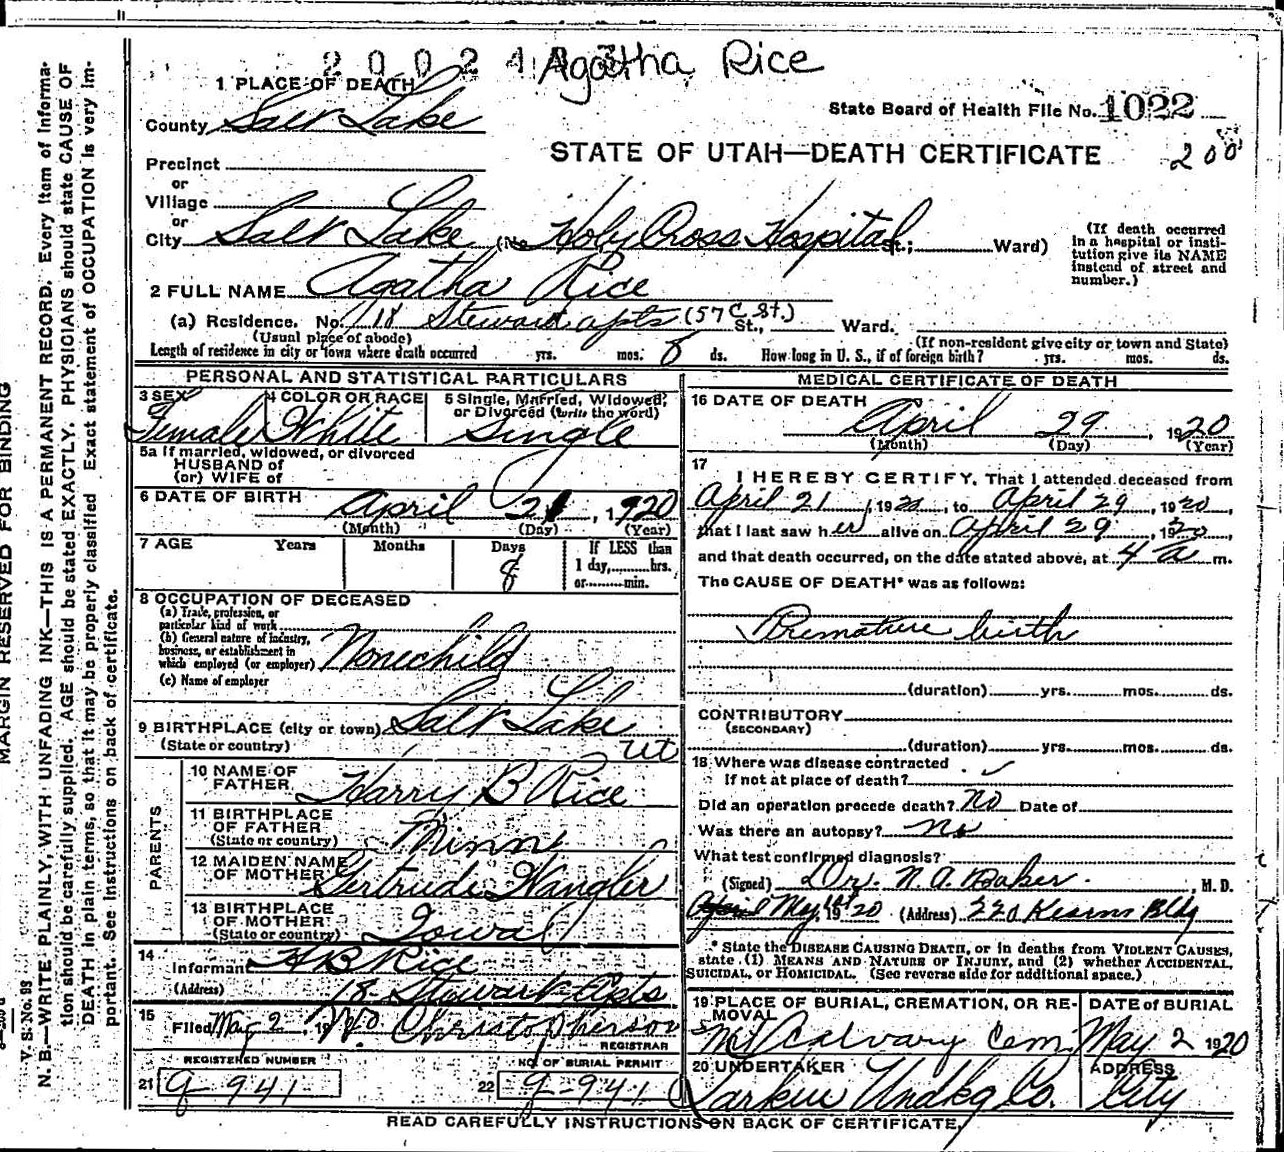 2 0 0 2 4 Agatha Rice
1 PLACE OF DEATH
County Salt Lake
State Board of Health File No. 1022
STATE OF UTAH—DEATH CERTIFICATE 200
Precinct
or
Village
or
City Salt Lake (No. Holy Cross Hospital St.; Ward)
(If death occurred in a hospital or insti-
tution give its NAME
instead of street and
number.)
2 FULL NAME Agatha Rice
(a) Residence. No. 18 Steward apts (57 C St.) St., Ward.
(Usual place of abode) (If non-resident give city or town and State)
Length of residence in city or town where death occurred yrs. mos. 8 ds. How long in U. S., if of foreign birth? yrs. mos. ds.
PERSONAL AND STATISTICAL PARTICULARS
3 SEX Female
4 COLOR OR RACE White
5 Single, Married, Widowed,
or Divorced (write the word)
Single
5a If married, widowed, or divorced
HUSBAND of
(or) WIFE of
6 DATE OF BIRTH April 21, 1920
(Month) (Day) (Year)
7 AGE Years Months Days 8
If LESS than
1 day, hrs.
or min.
8 OCCUPATION OF DECEASED
(a) Trade, profession, or
particular kind of work
(b) General nature of industry,
business, or establishment in
which employed (or employer) None child
(c) Name of employer
9 BIRTHPLACE (city or town) Salt Lake
(State or country) Ut
PARENTS
10 NAME OF
FATHER Harry B Rice
11 BIRTHPLACE
OF FATHER
(State or country) Minn
12 MAIDEN NAME
OF MOTHER Gertrude Wangler
13 BIRTHPLACE
OF MOTHER
(State or country) Iowa
14
Informant H B Rice
(Address) 18 Stewart Apts
15
Filed May 2 19 Christopherson
REGISTRAR
REGISTERED NUMBER
21 g-941
NO. OF BURIAL PERMIT
22 g-941
MEDICAL CERTIFICATE OF DEATH
16 DATE OF DEATH
April 29, 1920
(Month) (Day) (Year)
17
I HEREBY CERTIFY, That I attended deceased from
April 21, 1920, to April 29, 1920,
that I last saw her alive on April 29, 1920
and that death occurred, on the date stated above, at 4 a m.
The CAUSE OF DEATH* was as follows:
Premature birth
(duration) yrs. mos. ds.
CONTRIBUTORY
(SECONDARY)
(duration) yrs. mos. ds.
18 Where was disease contracted
if not at place of death?
Did an operation precede death? No Date of
Was there an autopsy? no
What test confirmed diagnosis?
(Signed) Dr. N. A. Baker, M. D.
April May 1st 1920 (Address) 220 Kearns Bldg
* State the DISEASE CAUSING DEATH, or in deaths from VIOLENT CAUSES,
state (1) MEANS AND NATURE OF INJURY, and (2) whether ACCIDENTAL,
SUICIDAL, or HOMICIDAL. (See reverse side for additional space.)
19 PLACE OF BURIAL, CREMATION, OR RE-
MOVAL
Mt Calvary Cem
DATE OF BURIAL
May 2 1920
20 UNDERTAKER
Larkin Undkg Co.
ADDRESS
City
READ CAREFULLY INSTRUCTIONS ON BACK OF CERTIFICATE.
MARGIN RESERVED FOR BINDING
V. S. No.
N. B.—WRITE PLAINLY, WITH UNFADING INK—THIS IS A PERMANENT RECORD. Every item of informa-
tion should be carefully supplied. AGE should be stated EXACTLY. PHYSICIANS should state CAUSE OF
DEATH in plain terms, so that it may be properly classified. Exact statement of OCCUPATION is very im-
portant. See instructions on back of certificate.